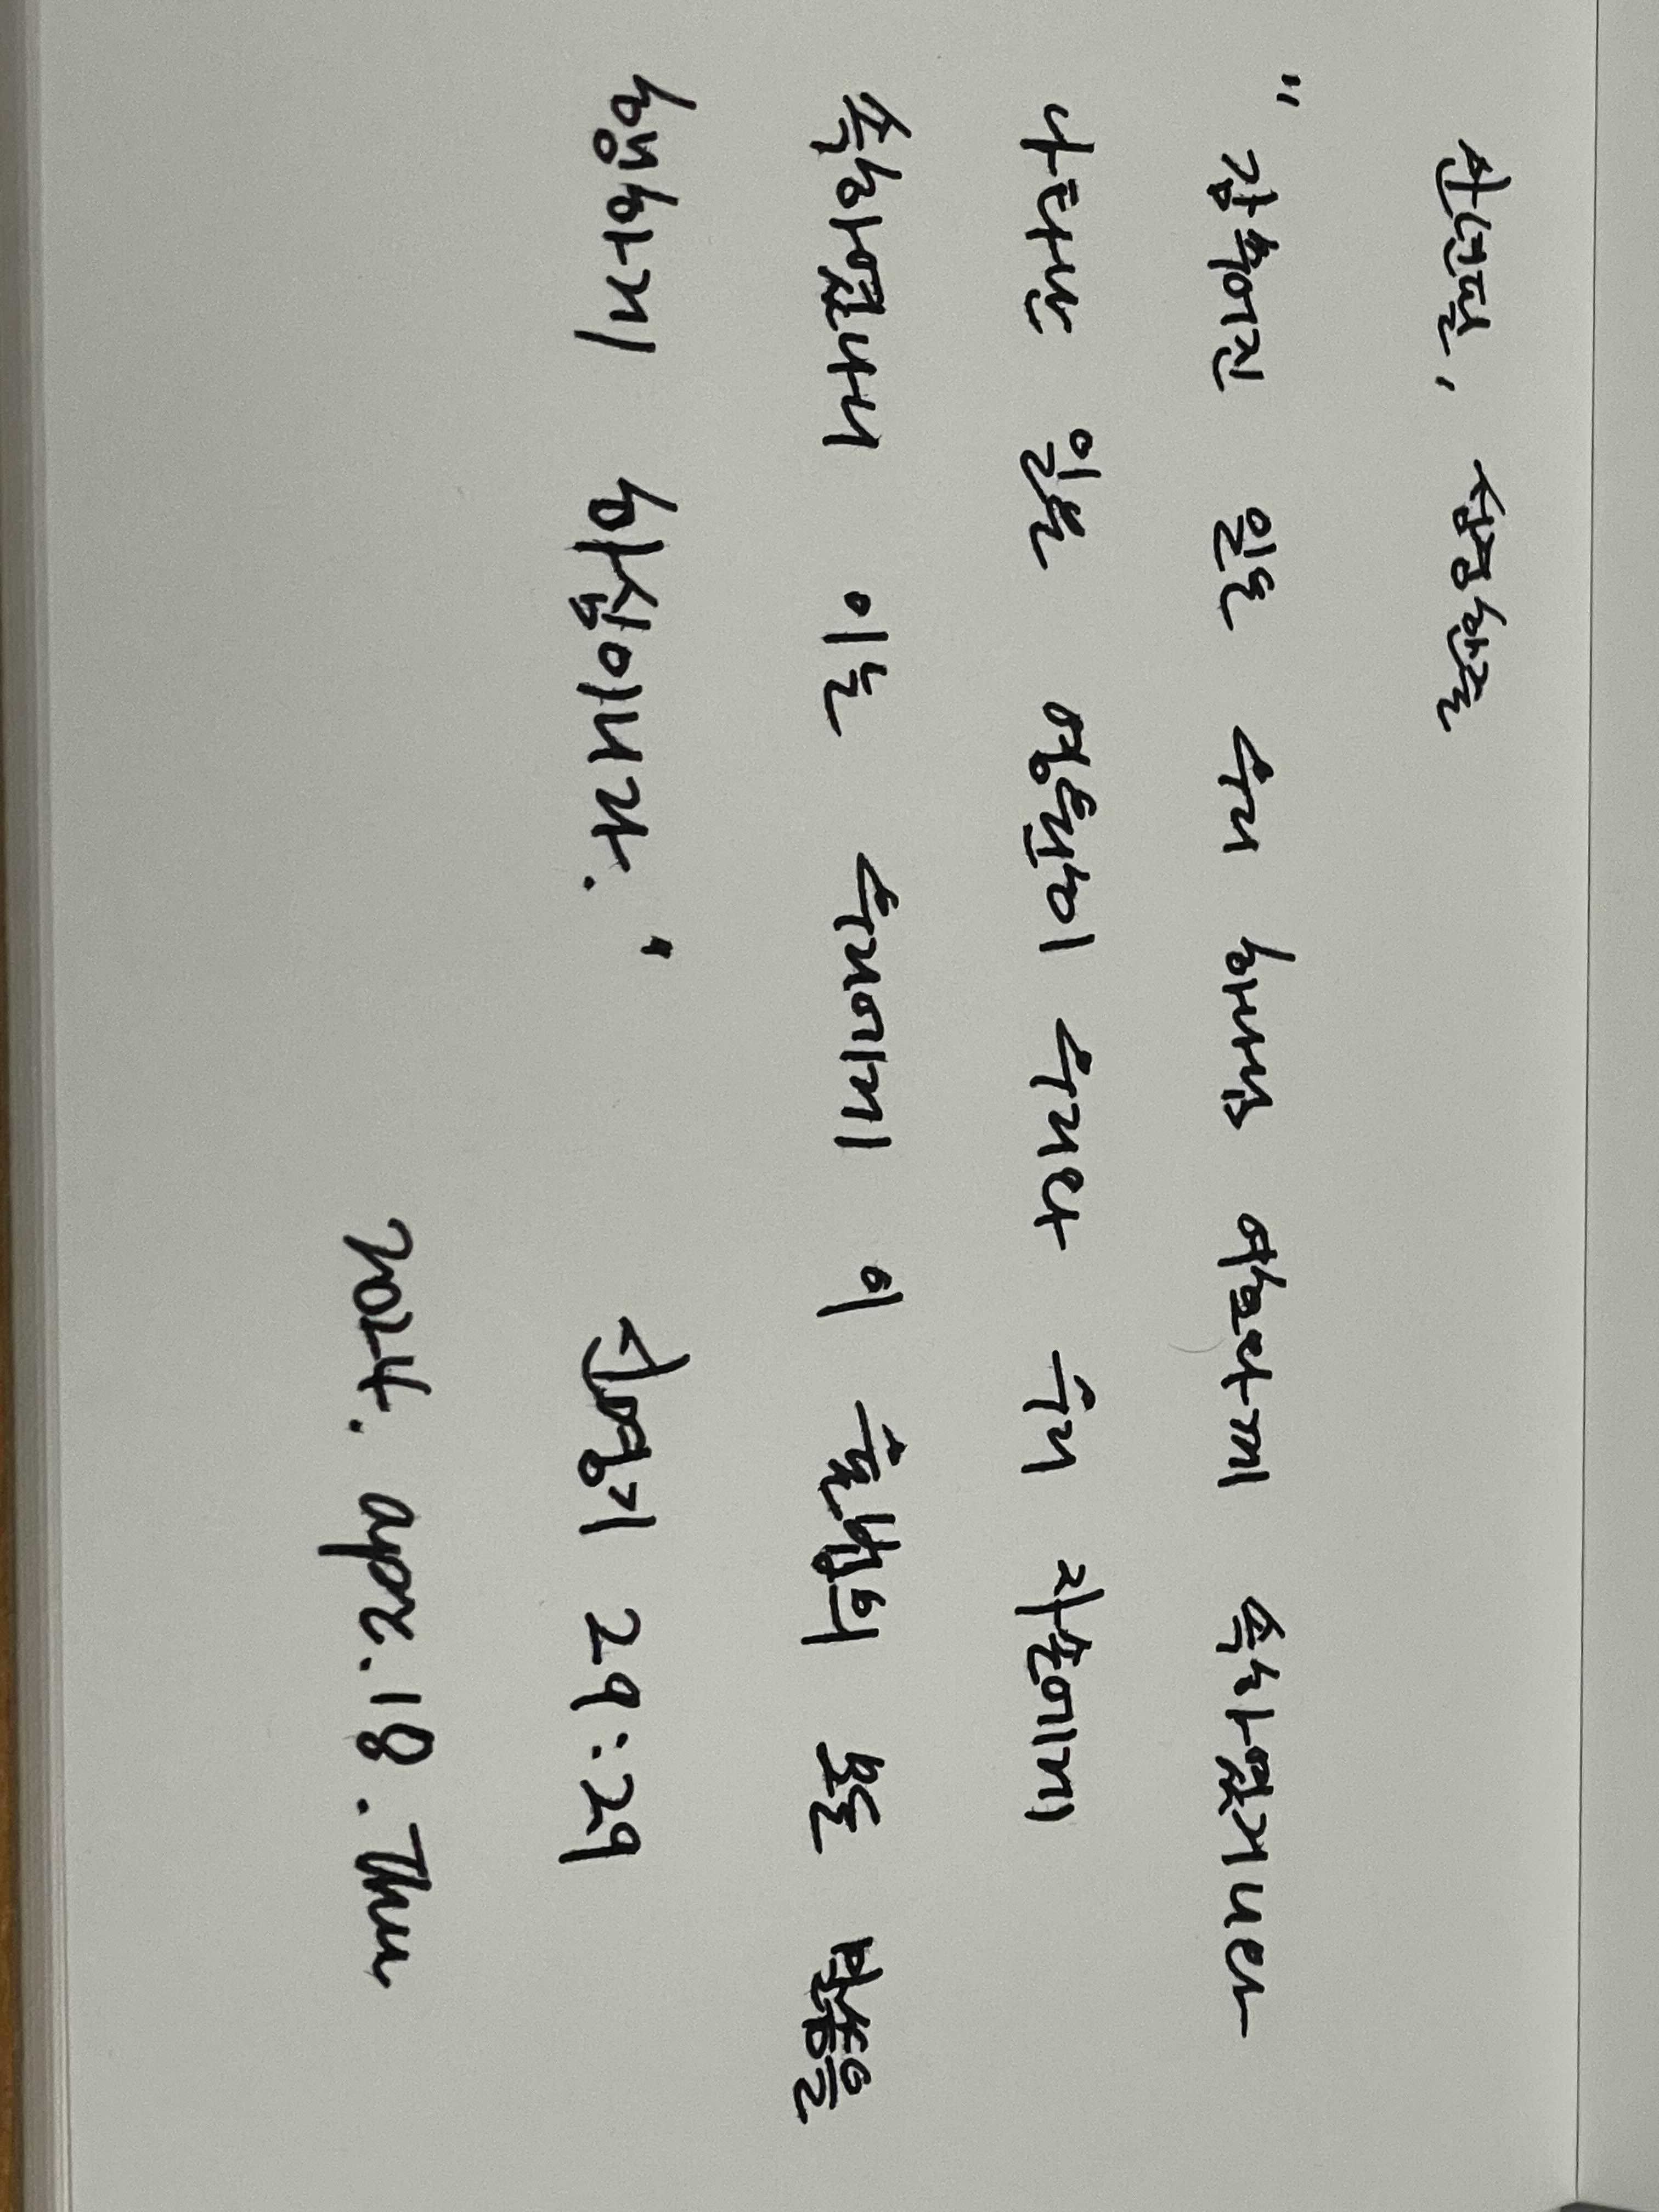 산년필, 성경한줄
" 감추어진 일은 우리 하나님 여호와께 속하였거니와
나타난 일은 영원히 우리와 우리 자손에게
속하였나니 이는 우리에게 이 율법의 모든 말씀을
행하게 하심이니라. "
신명기 29:29
2024. apr. 18. Thu